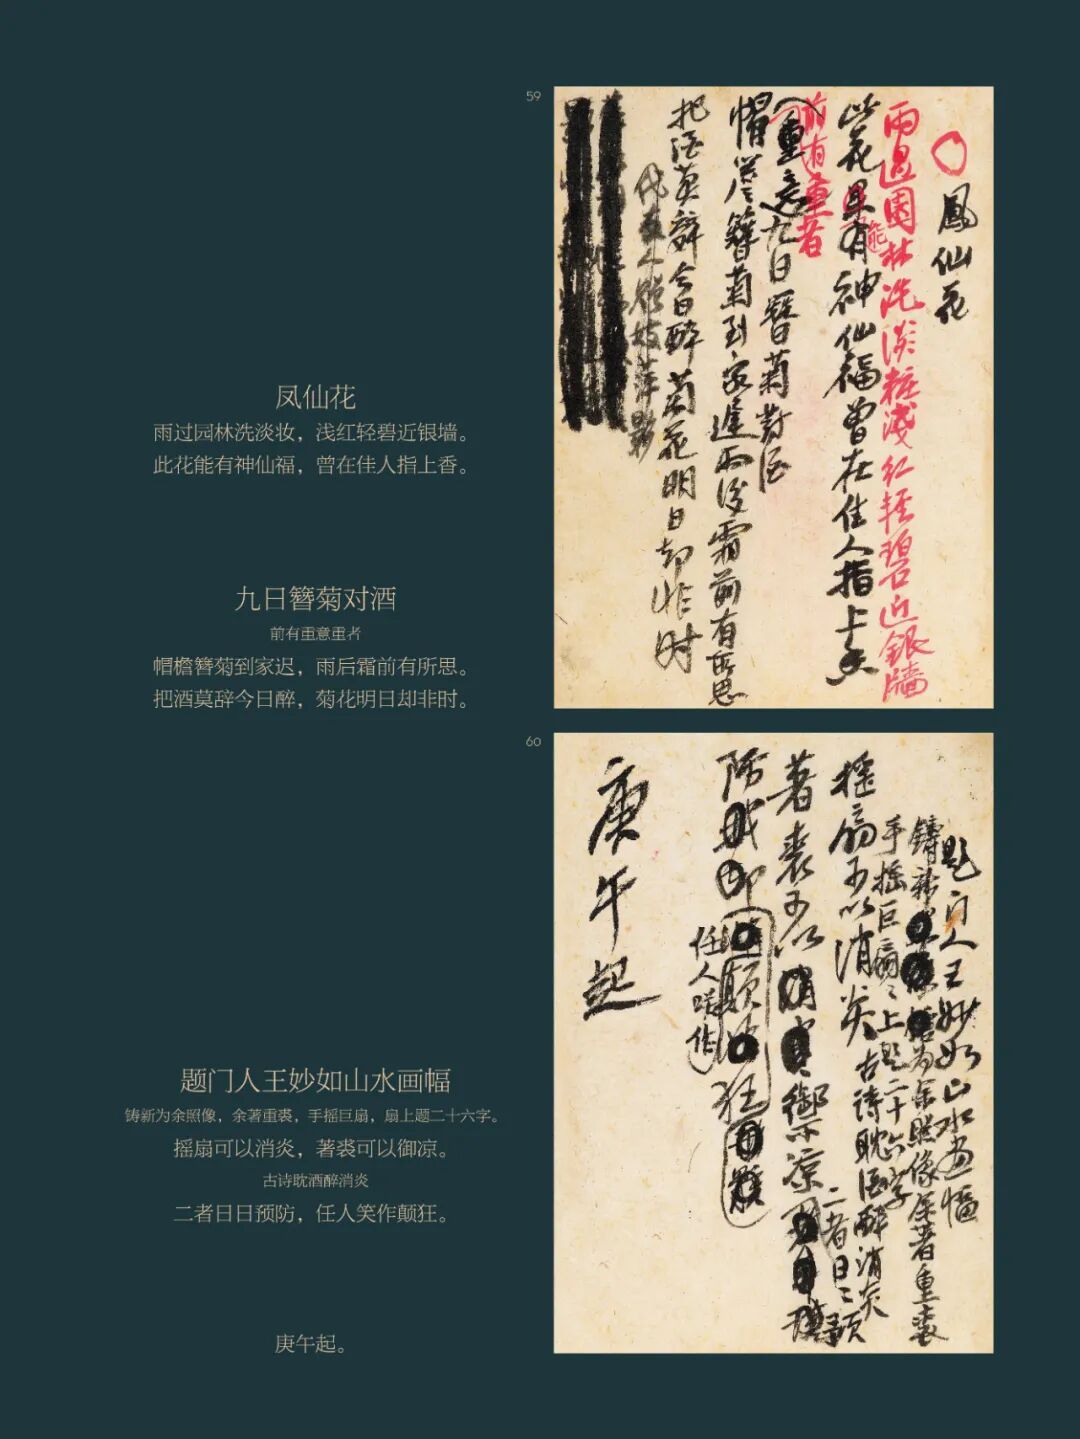 凤仙花
雨过园林洗淡妆，浅红轻碧近银墙。
此花能有神仙福，曾在佳人指上香。
九日簪菊对酒
前有重意重者
帽檐簪菊到家迟，雨后霜前有所思。
把酒莫辞今日醉，菊花明日却非时。
题门人王妙如山水画幅
铸新为余照像，余著重裘，手摇巨扇，扇上题二十六字。
摇扇可以消炎，著裘可以御凉。
古诗耽酒醉消炎
二者日日预防，任人笑作颠狂。
庚午起。
59
鳳仙花
雨過園林洗淡粧淺紅輕碧近銀牆
此花果有神仙福曾在佳人指上香
能
前有重者
重意九日簪菊對酒
帽簷簪菊到家遲雨後霜前有所思
把酒莫辭今日醉菊花明日却非時
60
題門人王妙如山水畫幅
鑄新為余照像余著重裘
手搖巨扇扇上題二十六字
搖扇可以消炎古詩耽酒醉消炎
著裘可以御涼
二者日日預
防
任人笑作
顛狂
庚午起